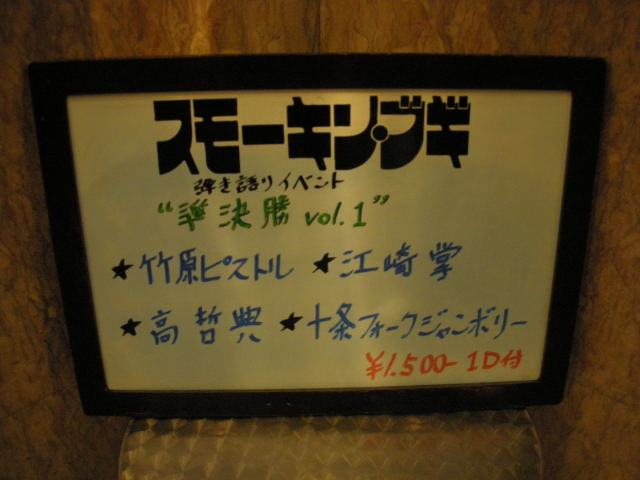 スモーキン・ブギ
弾き語りイベント
“準決勝 vol.1”
★竹原ピストル ★江崎掌
★高哲典 ★十条フォークジャンボリー
¥1.500- 1D付